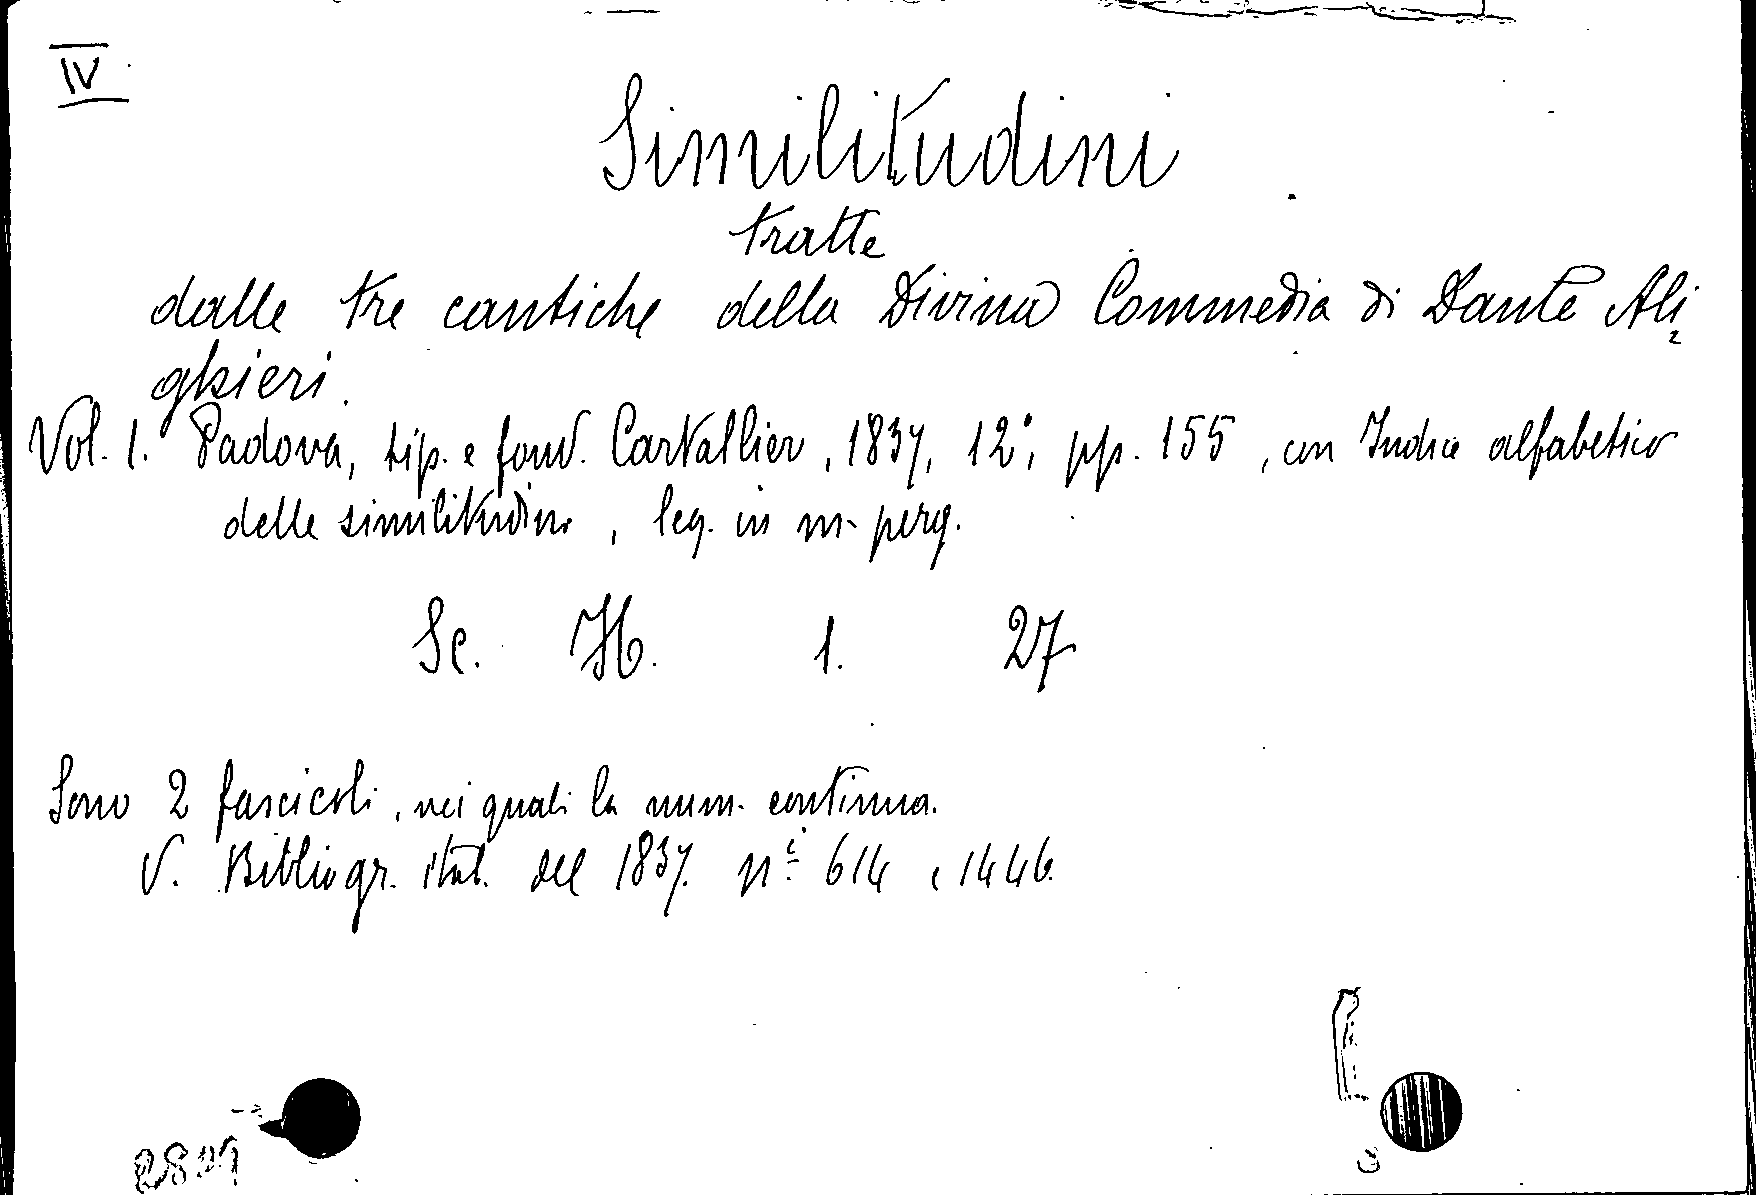 IV
Similitudini
tratte
dalle tre cantiche della Divina Commedia di Dante Ali
ghieri.
Vol. 1. Padova, tip. e fond. Cartallier, 1837, 12°, pp. 155, con Indice alfabetico
delle similitudini, leg. in m. perg.
Sc. H. 1. 27
Sono 2 fascicoli, nei quali la num. continua.
V. Bibliogr. ital. del 1837. ni 614 e 1446.